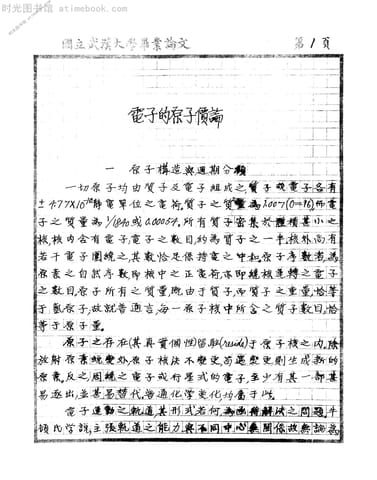 时光图书馆 atimebook.com
國立武漢大學畢業論文 第1頁
電子的原子價論
一 原子構造與週期分類
一切原子均由質子及電子組成之質子或電子各有
±4.77X10⁻¹⁰靜電單位之電荷。質子之質量為1.007(O=16)而電
子之質量為1/1840或0.00054。所有質子密集於體積甚小之
核，核內含有電子，電子之數目，約為質子之一半，核外尚有
若干電子圍繞之，其數恰足保持電之中和。原子序數者，為
原素之自然序數，即核中之正電荷，亦即繞核運轉之電子
之數目。原子所有之質量，既由于質子，而質子之重量，恰等
于氫原子，故就普通言，每一原子核中所含之質子數目，恰
等于原子量。
原子之存在(其真實個性留駐(reside)于原子核之内，除
放射原素蛻變外，原子核決不變更，苟遇變更，則生成新的
原素。反之，周繞之電子或行星式的電子，至少有其一部，甚
易逐出，並甚易替代，普通化學變化，均屬于此。
電子運動之軌道，其形式若何，為尚待解决之問題，牛
頓氏學說，主張軌道之能力與不同中心無關係，故無論為